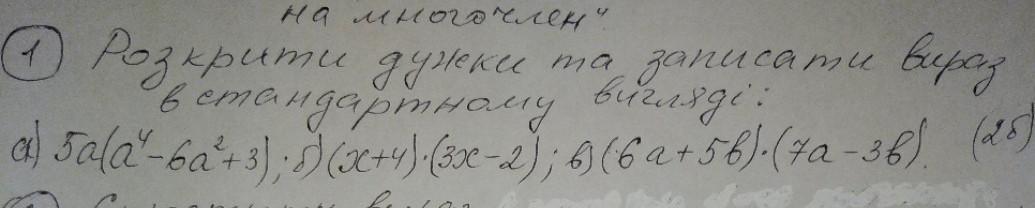 на многочлен"
1 Розкрити дужки та записати вираз
в стандартному вигляді:
а) 5a(a⁴-6a²+3); б) (x+4)·(3x-2); в) (6a+5b)·(7a-3b). (2б)